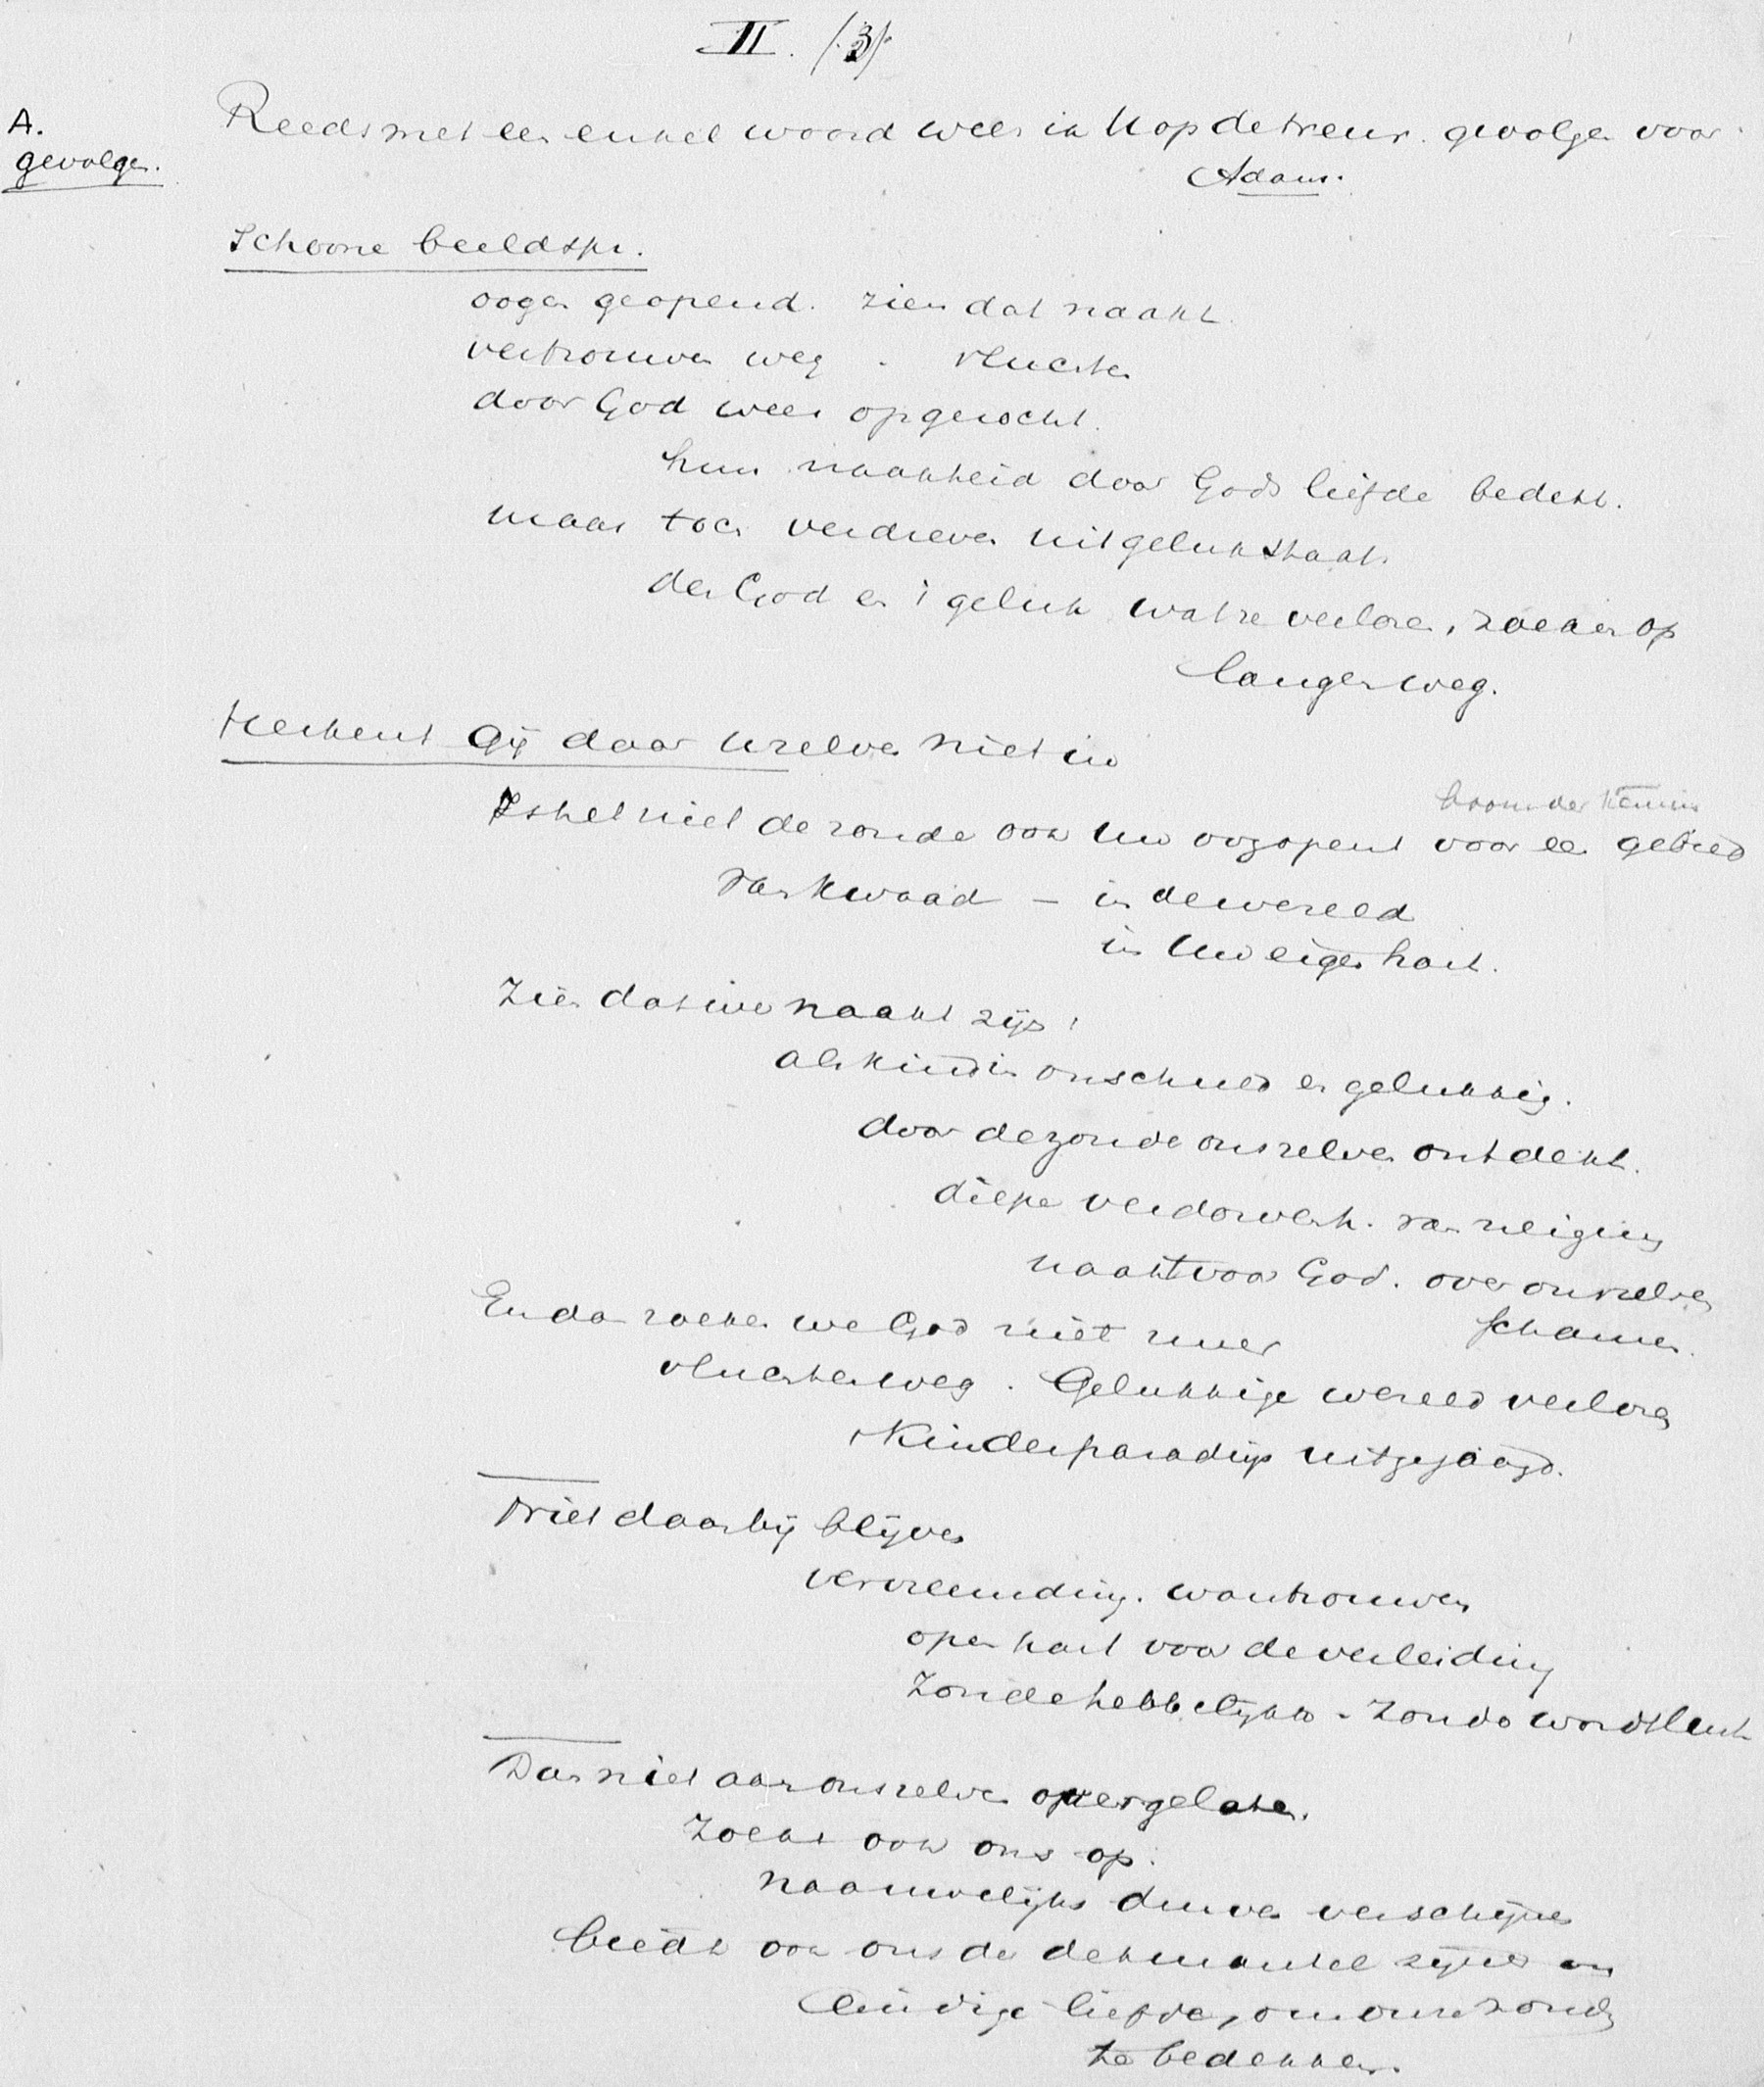 II. (3)
A.
gevolgen.
Reeds met een enkel woord wees ik U op de treur. gevolgen voor
Adam.
Schoone beeldspr.
oogen geopend. zien dat naakt.
vertrouwen weg. vluchten
door God weer opgezocht.
hun naaktheid door Gods liefde bedekt.
maar toch verdreven uit gelukstaat.
den God en 't geluk wat ze verloren, zoeken op
langen weg.
Herkent Gij daar Uzelven niet in
Is het niet de zonde ook Uw oog opent voor een gebied
boom der kennis
van kwaad – in de wereld
in Uw eigen hart.
Zien dat we naakt zijn!
als kind in onschuld en gelukkig.
door de zonde ons zelven ontdekt.
diepe verdorvenh. van neiging
naakt voor God. over ons zelven
schamen.
En dan zoeken we God niet meer
vluchten weg. Gelukkige wereld verloren
't Kinderparadijs uitgejaagd.
Niet daarbij blijven
vervreemding. wantrouwen
open hart voor de verleiding
Zonde hebbelijkh. - Zonde wordt lust
Dan niet aan ons zelven overgelaten.
Zoekt ook ons op.
naauwelijks durven verschijnen
biedt ook ons den dekmantel zijner on
eindige liefde, om onze zonden
te bedekken.